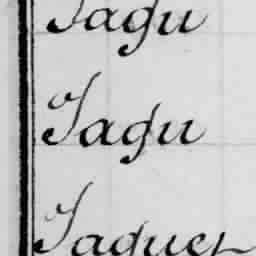 Jagu
Jagu
Jaguer